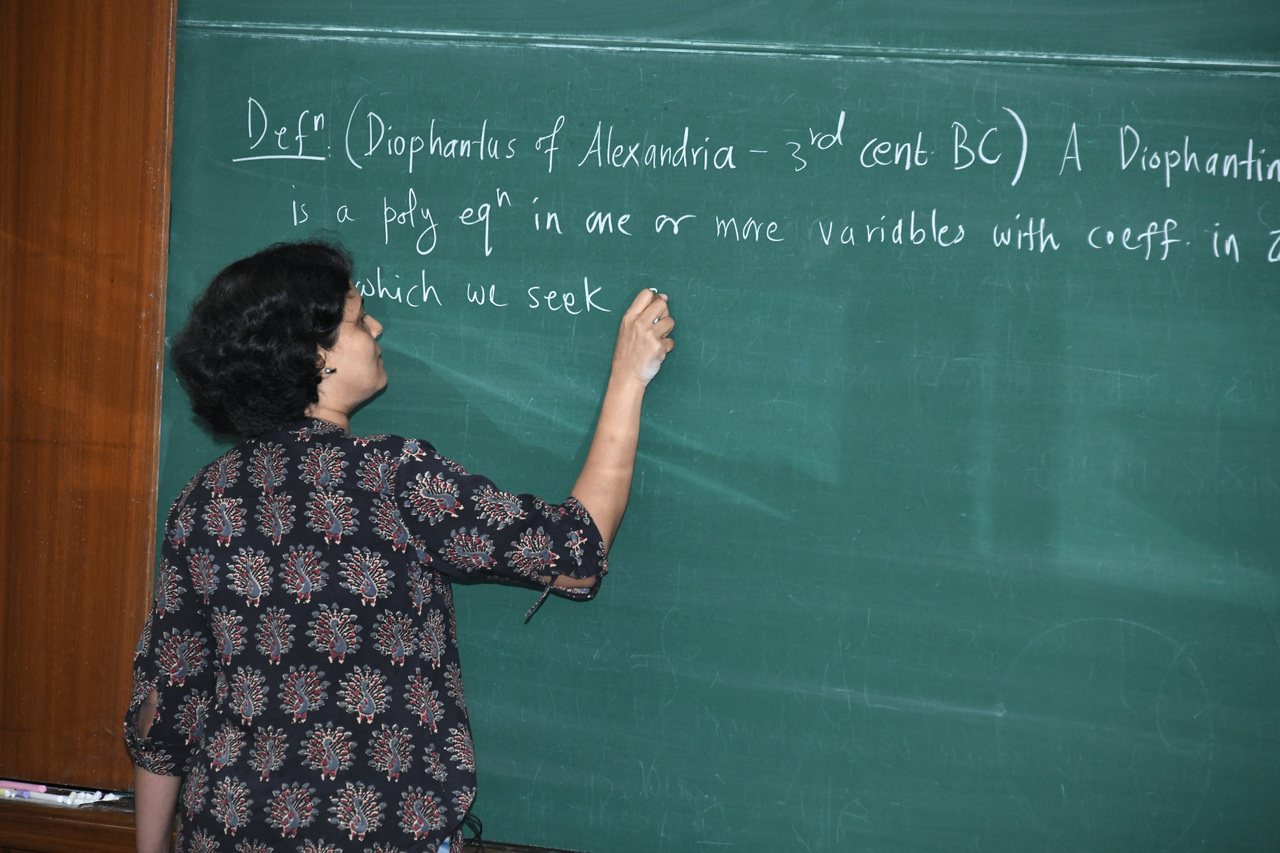 Defⁿ: (Diophantus of Alexandria – 3ʳᵈ cent. BC) A Diophantin
is a poly eqⁿ in one or more variables with coeff. in
which we seek